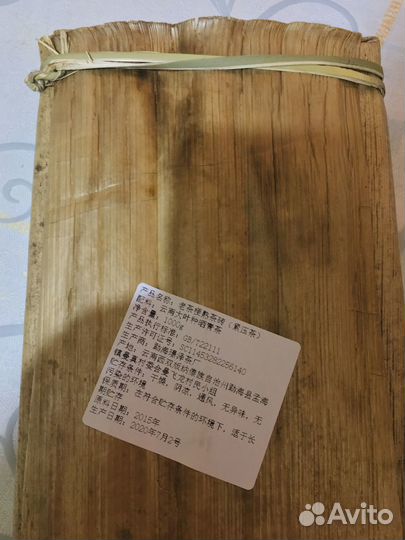 产品名称：老茶熟茶砖（紧压茶）
配料：云南大叶种晒青茶
净含量：1000g
产品执行标准：GB/T22111
生产许可证号：SC11453282256140
生产商：勐海璟泽茶厂
产地：云南西双版纳傣族自治州勐海县勐海
镇曼真村委会曼飞龙村民小组
贮存条件：干燥，阴凉，通风，无异味，无
污染的环境
保质期：在符合贮存条件的环境下，适于长
期贮存
原料日期：2015年
生产日期：2020年7月2号
Avito